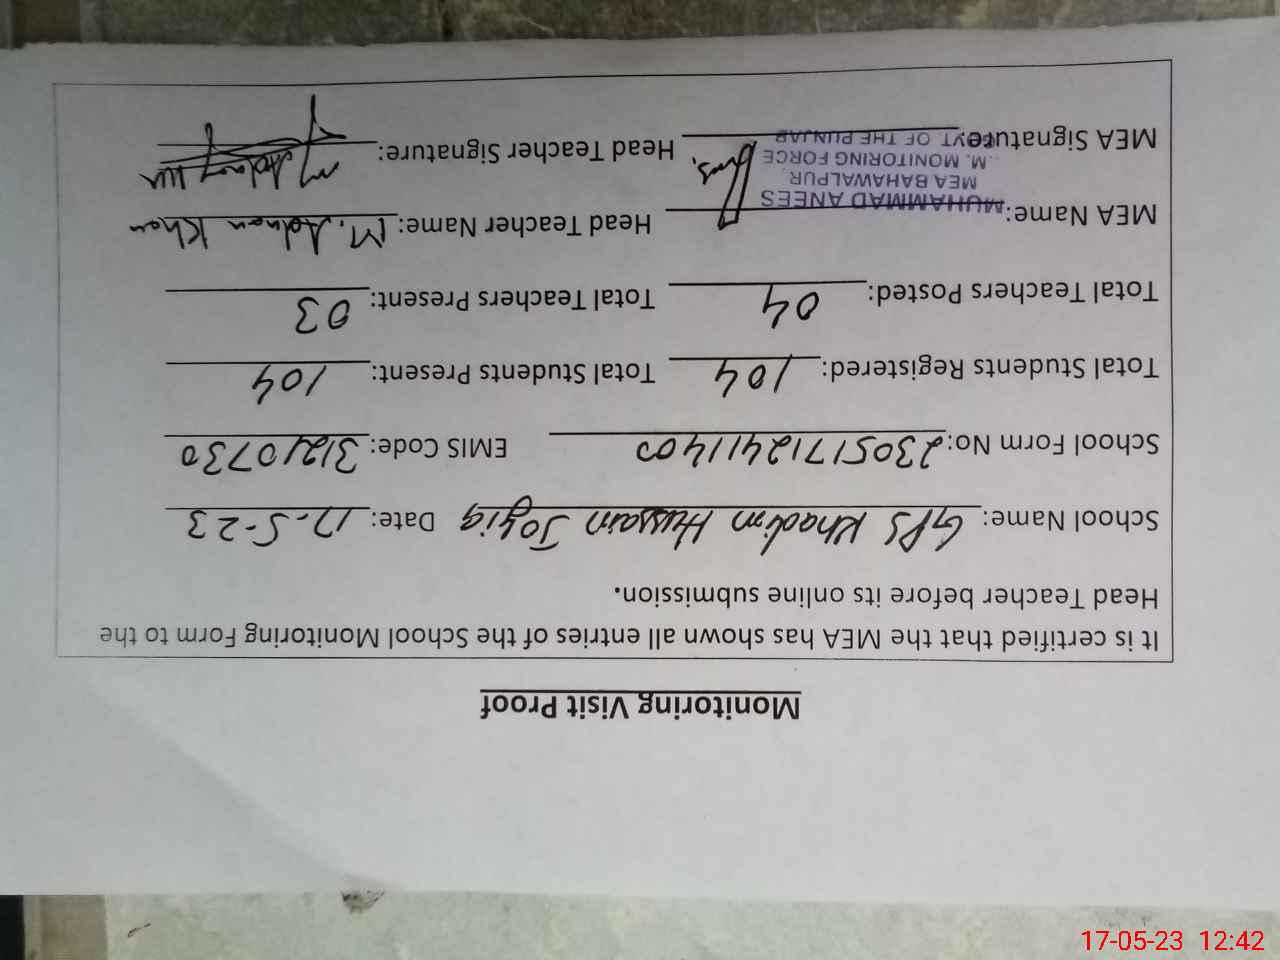 Monitoring Visit Proof
It is certified that the MEA has shown all entries of the School Monitoring Form to the
Head Teacher before its online submission.
School Name: GPS Khadim Hussain Joyia Date: 17-5-23
School Form No: 2305171241400 EMIS Code: 31210730
Total Students Registered: 104 Total Students Present: 104
Total Teachers Posted: 04 Total Teachers Present: 03
MEA Name: MUHAMMAD ANEES Head Teacher Name: M. Adnan Khan
MEA BAHAWALPUR
M. MONITORING FORCE
MEA Signature: GOVT. OF THE PUNJAB Head Teacher Signature:
17-05-23 12:42